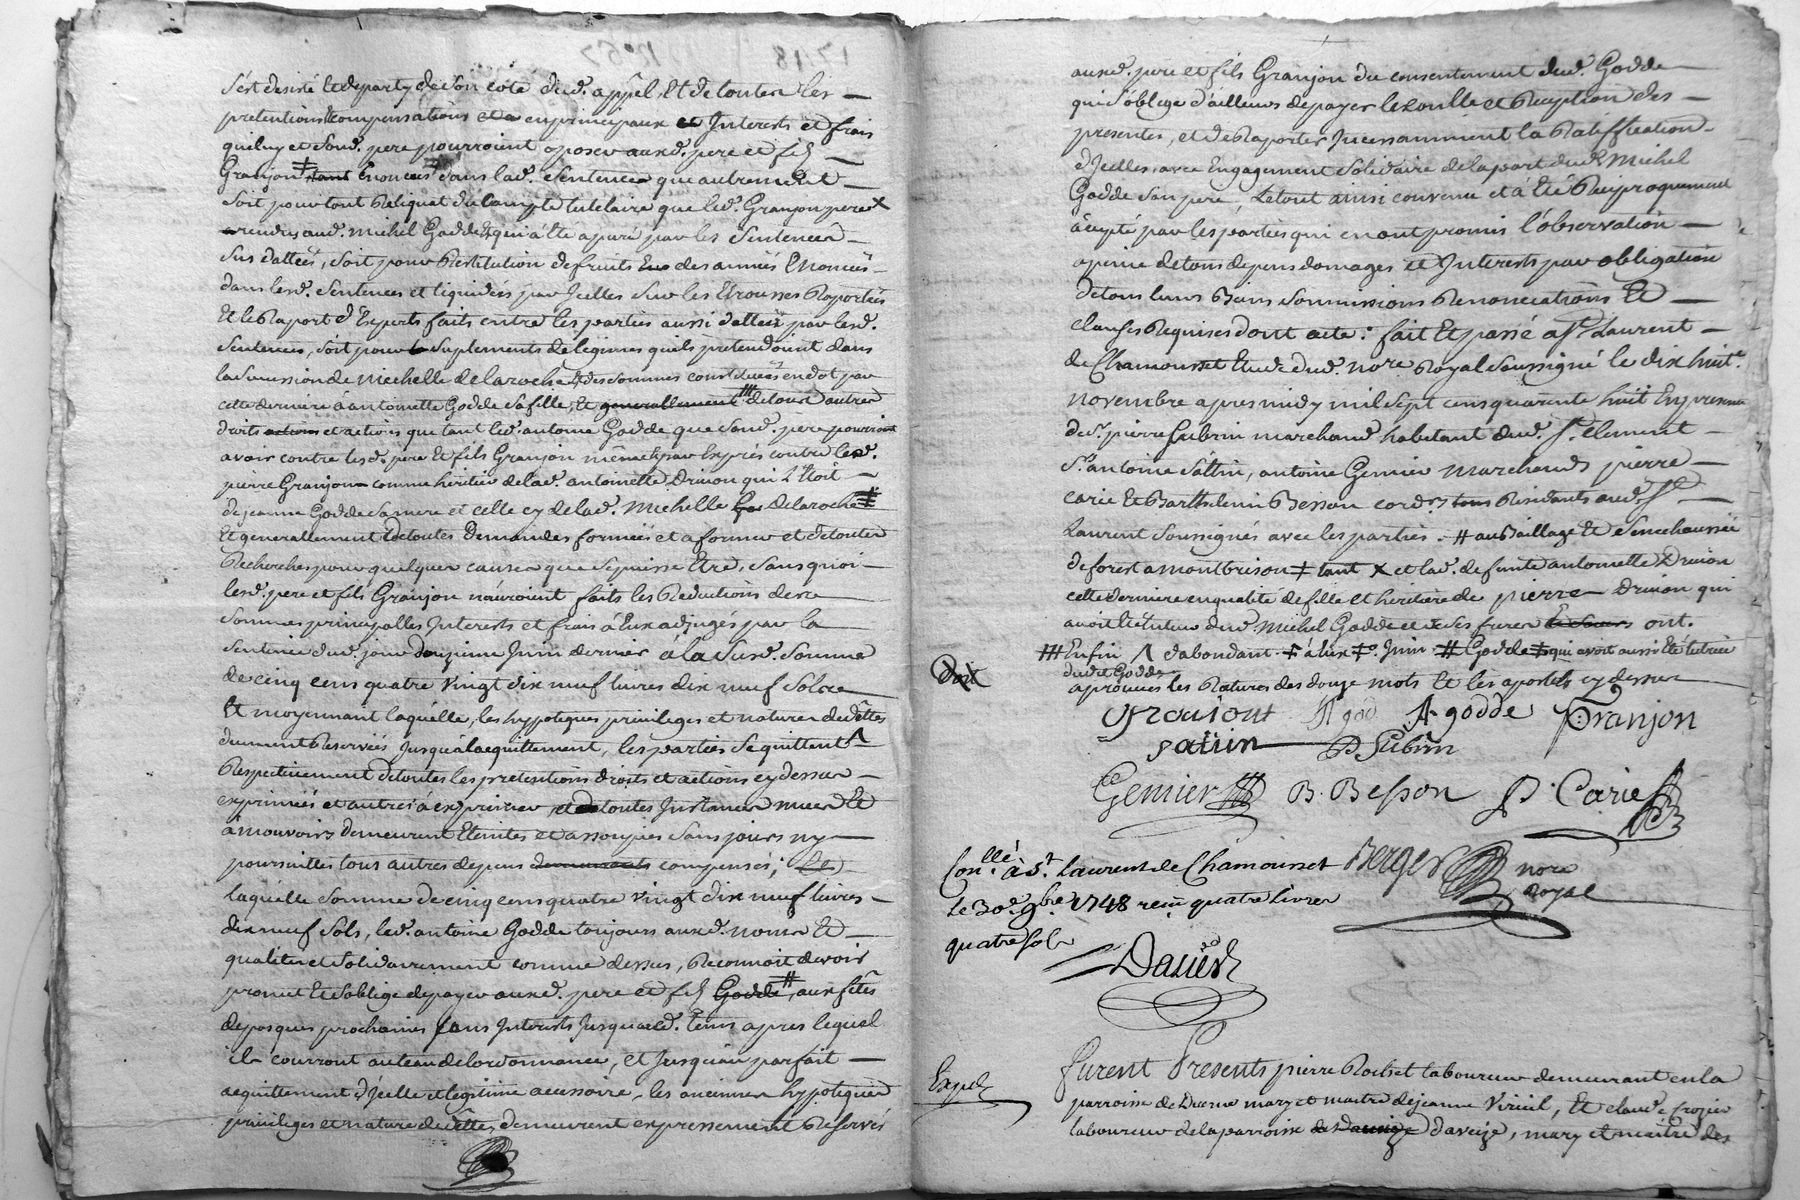 s'est desisté et departy de son coté dud. appel, et de toutes les
pretentions compensations et a en principaux et Interests et frais
quil uy et sond. pere pourroient oposer auxd. pere et fils
Granjon ‡ tant Enoncés dans lad. Sentence que autrement
soit pour tout Reliquat du Compte tutelaire que led. Granjon pere X
rendus aud. Michel Godde qui a été apuré par les Sentences
sus dattées, soit pour Restitution de fruits des années Enoncés
dans lesd. Sentences et liquidées par Icelles sur les Raportées
et le Raport d'Experts faits entre les parties aussi dattés par lesd.
Sentences, soit pour Suplements de legitimes quils pretendoient dans
la Succession de Michelle delaroche et des sommes constituées en dot par
cette derniere a antoinette Godde sa fille, et generallement # de tous autres
droits actions et actions que tant led. antoine Godde que sond. pere pourroient
avoir contre lesd. pere et fils Granjon même par Exprés contre led.
pierre Granjon comme héritier de lad. antoinette Drivon qui L'étoit
de jeanne Godde sa mere et celle cy de lad. Michelle delaroche ‡
et generallement de toutes Demandes formées et a former et de toutes
Recherches pour quelques causes que se puisse Etre, sans quoi
lesd. pere et fils Granjon n'auroient faits les Reductions desd.
sommes principalles Interests et frais à Eux adjugés par la
sentence dud. jour douzieme Juin dernier a la susd. Somme
de cinq cens quatre vingt dix neuf livres dix neuf sols
Et moyennant laquelle, les hypoteques privileges et natures desd. dettes
duement Reservées jusqu'a l'acquittement, les parties se quittent ^
Respectivement de toutes les pretentions droits et actions cy dessus
exprimées et autres à exprimer, et de toutes Instances mues et
à mouvoir demeurent Eteintes et assoupies sans jours ny
poursuittes tous autres depens demeurants compensés; Et
laquelle somme de cinq cens quatre vingt dix neuf livres
dix neuf sols, led. antoine Godde toujours auxd. noms Et
qualités et solidairement comme dessus, Reconnoit devoir
promet Et s'oblige de payer auxd. pere et fils Godde #, aux fêtes
de pasques prochaines sans Interests jusqu'aud. tems apres lequel
ils courront au taux de l'ordonnance, et jusqu'au parfait
acquittement d'Icelle et legitime accessoire, les anciennes hypoteques
privileges et nature de dettes, demeurent expressement Reservés
auxd. pere et fils Granjon du consentement dud. Godde
qui s'oblige d'ailleurs de payer le Conlle et Reception des
presentes, et de Raporter Incessamment la Ratiffication
d'Icelles avec Engagement Solidaire de la part dud. Michel
Godde son pere, Le tout ainsi convenu et a été Reciproquement
accepté par les parties qui en ont promis l'observation
a peine de tous depens domages et Interests par obligation
de tous leurs Biens soummissions Renonciations Et
clauses Requises dont acte: fait Et passé a St. Laurent
de Chamousset Etude dud. nore. Royal Soussigné le dix huit
novembre apres midy mil sept cens quarente huit En presence
de Sr. pierre Subrin marchand habitant dud. St. Clement
Sr. antoine Sattin, antoine Gemier Marchands pierre
carie Et Barthelemi Besson cord. tous Residents aud. St.
Laurent Soussignés avec les parties. # au Baillage Et Senechaussée
de forest a montbrison ‡ tant X et lad. defunte antoinette Drivon
cette derniere en qualité de fille et heritiere de pierre Drivon qui
avoit été tuteur dud. Michel Godde et de ses freres et soeurs ont.
# Enfin ^ d'abondant ‡ à Eux ‡ Juin # Godde ‡ qui avoit aussi été tutrice
dudit Godde
aprouvés les Ratures des douze mots Et les apostils cy dessus
A godde Granjon
Sattin P Subrin
Gemier B. Besson P. Carie
Conllé. à St. Laurent de Chamousset Berger nore
le 30e. 9bre 1748 reçu quatre livres Royal
quatre sols
Expd
furent Presents pierre Rochet laboureur demeurant en la
parroisse de Duerne mary et maitre de jeanne Viricel, Et claude Crozier
laboureur de la parroisse d'aveize, mary et maitre des